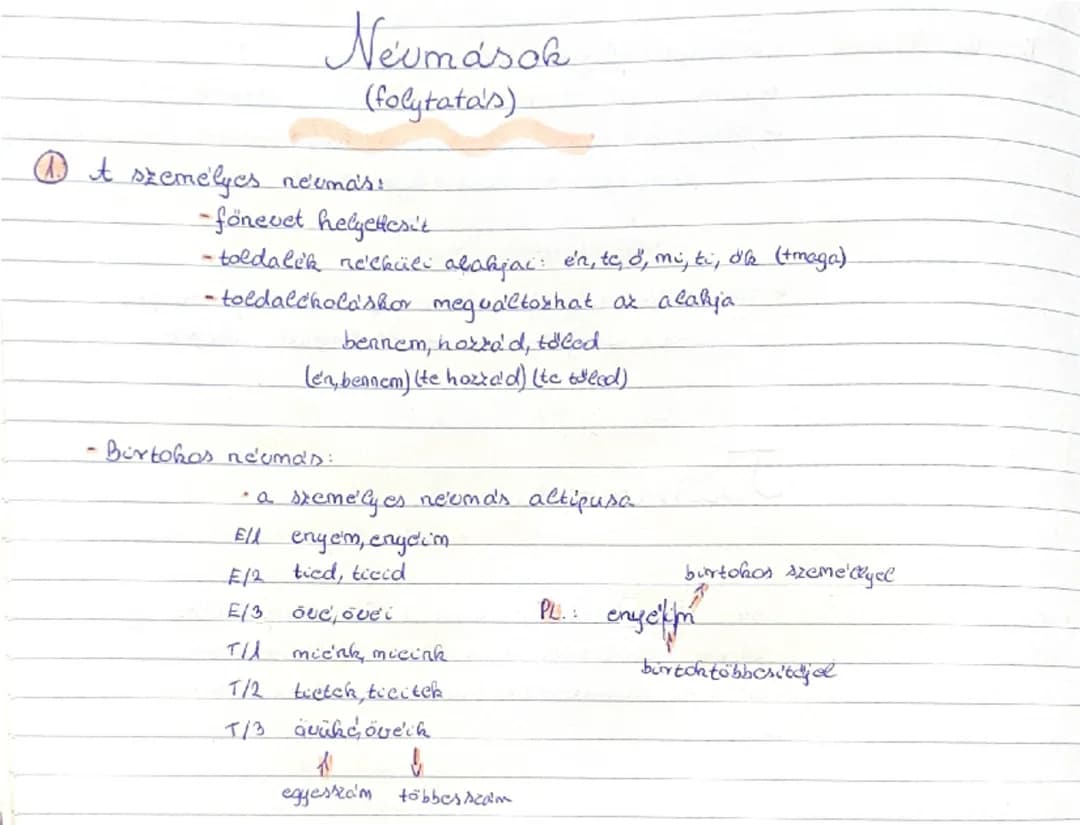 Névmások
(folytatás)
1. A személyes névmás:
- főnevet helyettesít
- toldalék nélküli alakjai: én, te, ő, mi, ti, ők (+maga)
- toldalékoláskor megváltozhat az alakja
bennem, hozzád, tőled
(én, bennem) (te hozzád) (te tőled)
- Birtokos névmás:
• a személyes névmás altípusa
E/1 enyém, enyéim
E/2 tied, tieid
E/3 övé, övéi birtokos személyjel
T/1 miénk, mieink PL.: enyé/i/m
T/2 tietek, tieitek birtoktöbbesítőjel
T/3 övüké, övéik
egyesszám többesszám